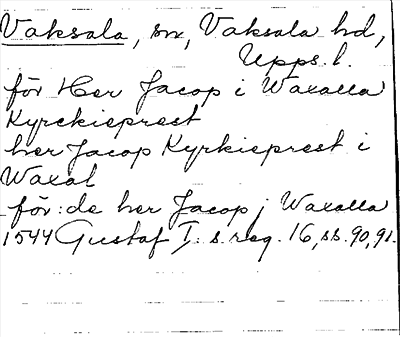 Vaksala, sn, Vaksala hd,
Upps. l.
för Her Jacop i Waxalla
Kyrckieprest
her Jacop Kyrkieprest i
Waxal
för:de her Jacop j Waxalla
1544 Gustaf I:s reg. 16, ss. 90, 91.